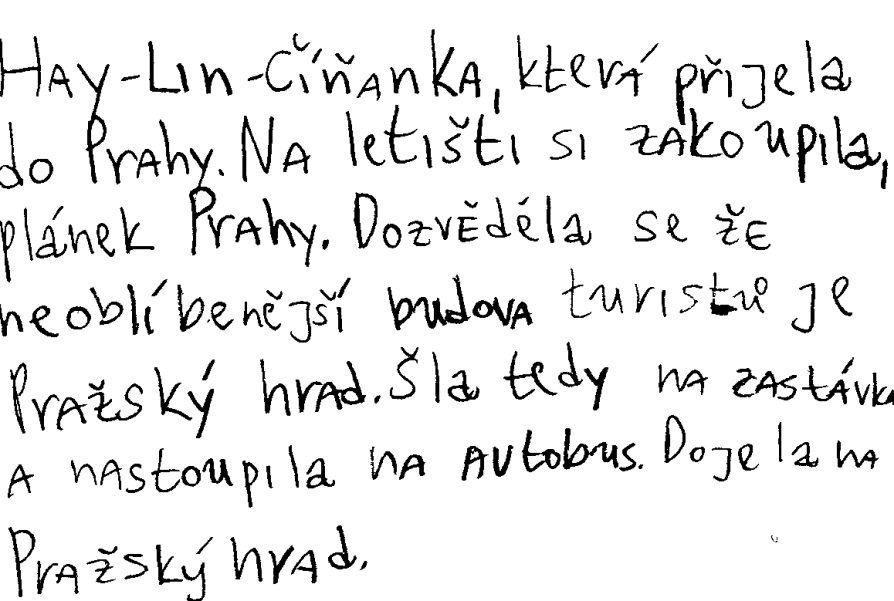 Hay-Lin-Číňanka, která přijela
do Prahy. Na letišti si zakoupila,
plánek Prahy. Dozvěděla se že
neoblíbenější budova turistů je
Pražský hrad. Šla tedy na zastávku
a nastoupila na autobus. Dojela na
Pražský hrad.